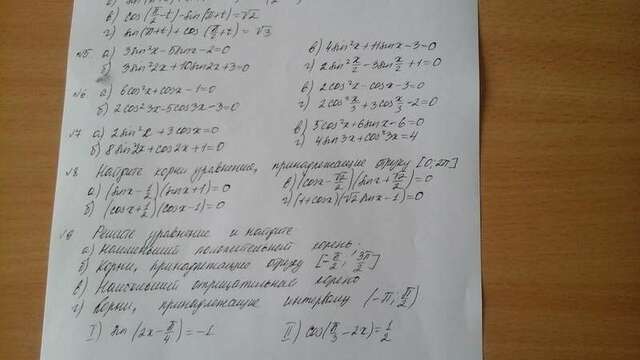 в) cos(π/2 - t) - sin(π + t) = √2
г) sin(π + t) + cos(π/2 + t) = √3
№5 а) 3sin²x - 5sinx - 2 = 0 в) 4sin²x + 11sinx - 3 = 0
б) 3sin²2x + 10sin2x + 3 = 0 г) 2sin² x/2 - 3sin x/2 + 1 = 0
№6 а) 6cos²x + cosx - 1 = 0 в) 2cos²x - cosx - 3 = 0
б) 2cos²3x - 5cos3x - 3 = 0 г) 2cos² x/3 + 3cos x/3 - 2 = 0
√7 а) 2sin²x + 3cosx = 0 в) 5cos²x + 6sinx - 6 = 0
б) 8sin²2x + cos2x + 1 = 0 г) 4sin3x + cos²3x = 4
√8 Найдите корни уравнения, принадлежащие отрезку [0; 2π]
а) (sinx - 1/2)(sinx + 1) = 0 в) (cosx - √2/2)(sinx + √2/2) = 0
б) (cosx + 1/2)(cosx - 1) = 0 г) (1 + cosx)(√2 sinx - 1) = 0
√9 Решите уравнение и найдите
а) Наименьший положительный корень.
б) Корни, принадлежащие отрезку [-π/2; 3π/2]
в) Наибольший отрицательный корень
г) Корни, принадлежащие интервалу (-π; π/2)
I) sin(2x - π/4) = -1 II) cos(π/3 - 2x) = 1/2